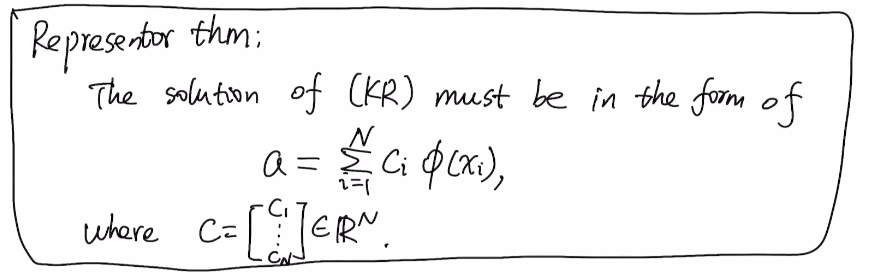 Representor thm:
The solution of (KR) must be in the form of
a = \sum_{i=1}^{N} c_i ϕ(x_i),
where c = \begin{bmatrix} c_1 \\ \vdots \\ c_N \end{bmatrix} ∈ ℝ^N.